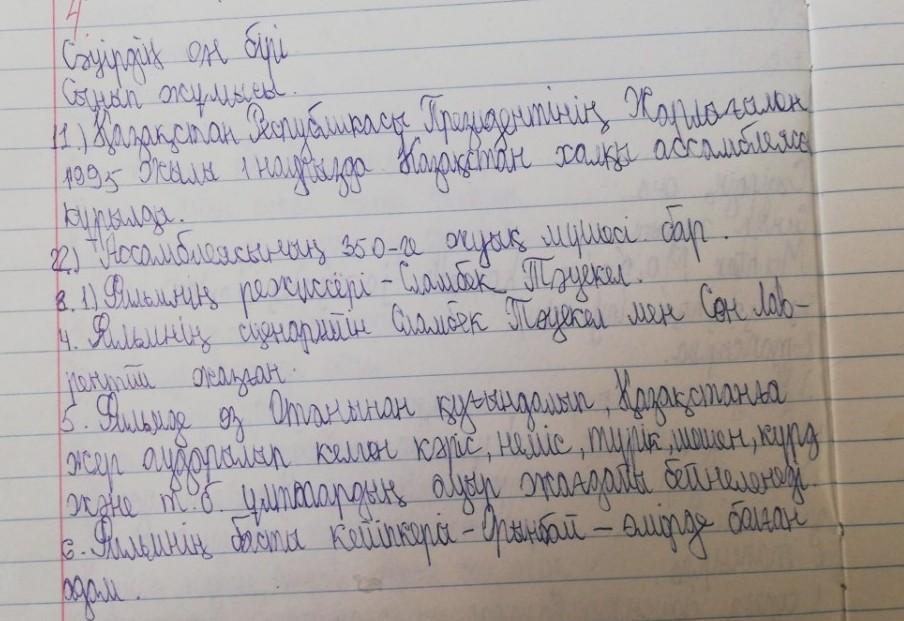 Сәуірдің он бірі
Сынып жұмысы.
1.) Қазақстан Республикасы Президентінің Жарлығымен
1995 жылы 1 наурызда Қазақстан халқы ассамблеясы
құрылда.
2) Ассамблеясының 350-ге жуық мүшесі бар.
3. 1) Фильмнің режиссері - Сламбек Тәуекел.
4. Фильмнің сценарийін Сламбек Тәуекел мен Сон Лав-
рентий жазған.
5. Фильмде өз Отанынан қуғындалып, Қазақстанға
жер аударылып келген кәріс, неміс, түрік, шешен, күрд
және т.б. ұлттардың ауыр жағдайы бейнеленеді.
6. Фильмнің басты кейіпкері - Орынбай - өмірде болған
адам.